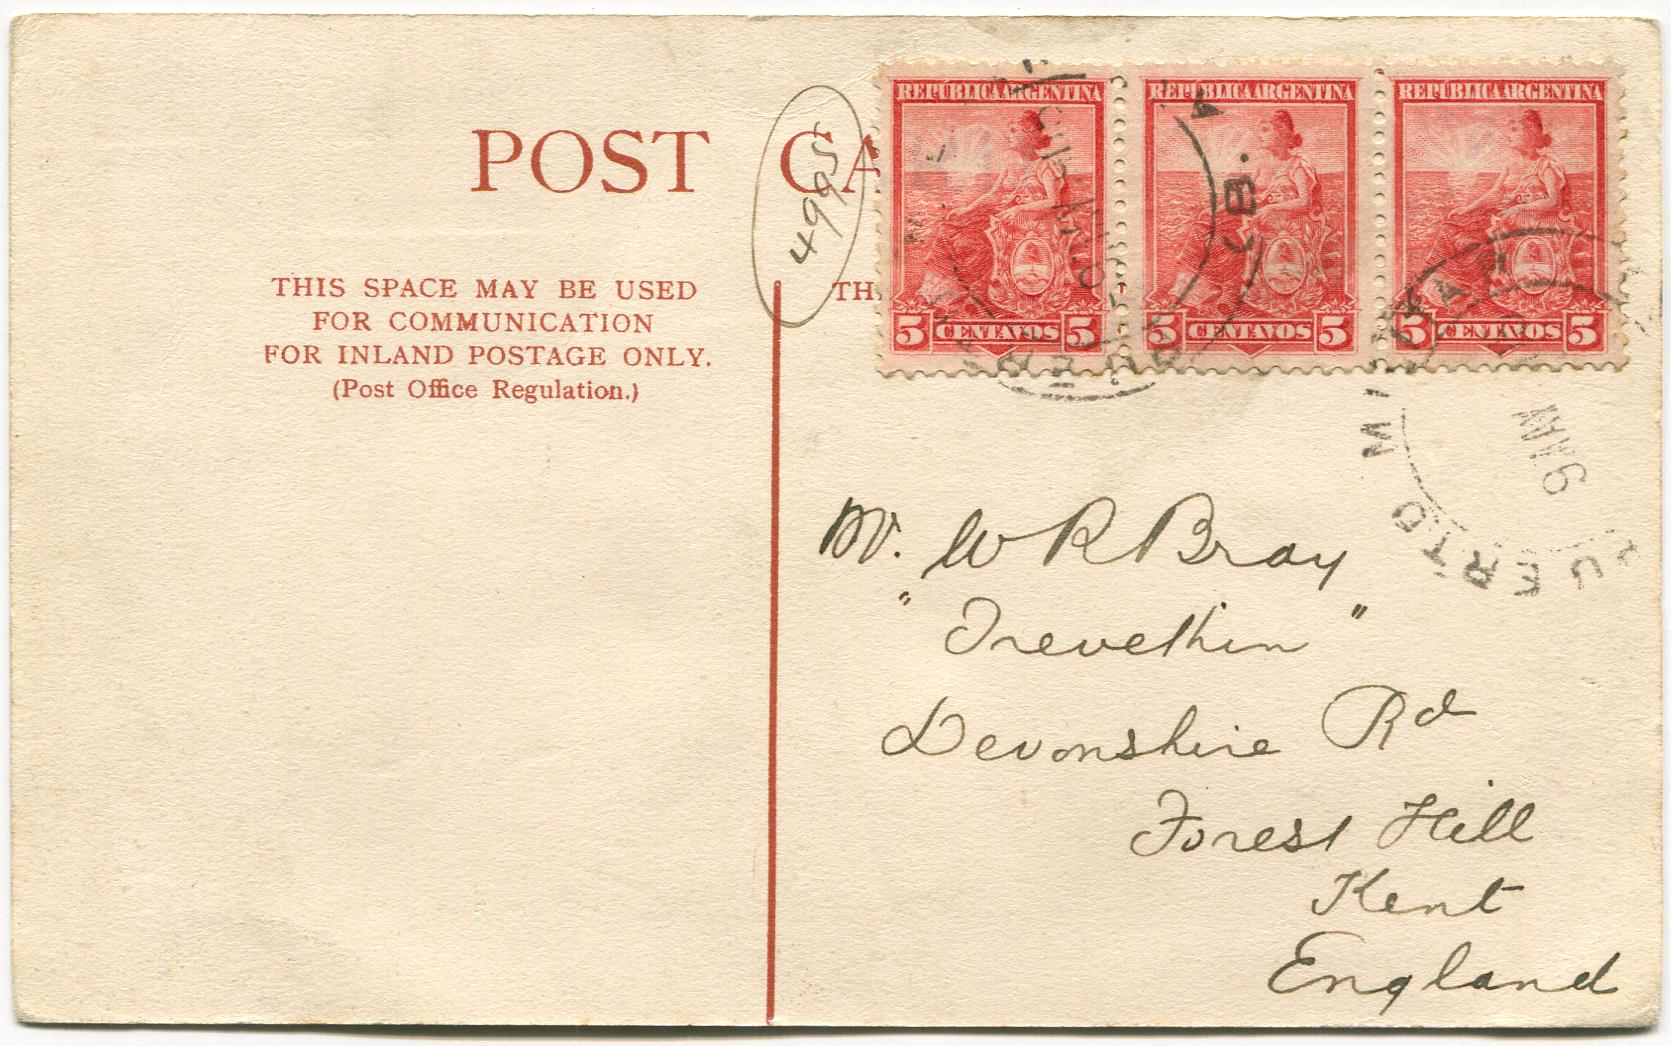 POST CA
4995
THIS SPACE MAY BE USED
FOR COMMUNICATION
FOR INLAND POSTAGE ONLY.
(Post Office Regulation.)
TH
REPÚBLICA ARGENTINA
5 CENTAVOS 5
REPÚBLICA ARGENTINA
5 CENTAVOS 5
REPÚBLICA ARGENTINA
5 CENTAVOS 5
PUERTO MI
Mr. W R Bray
"Trevethin"
Devonshire Rd
Forest Hill
Kent
England